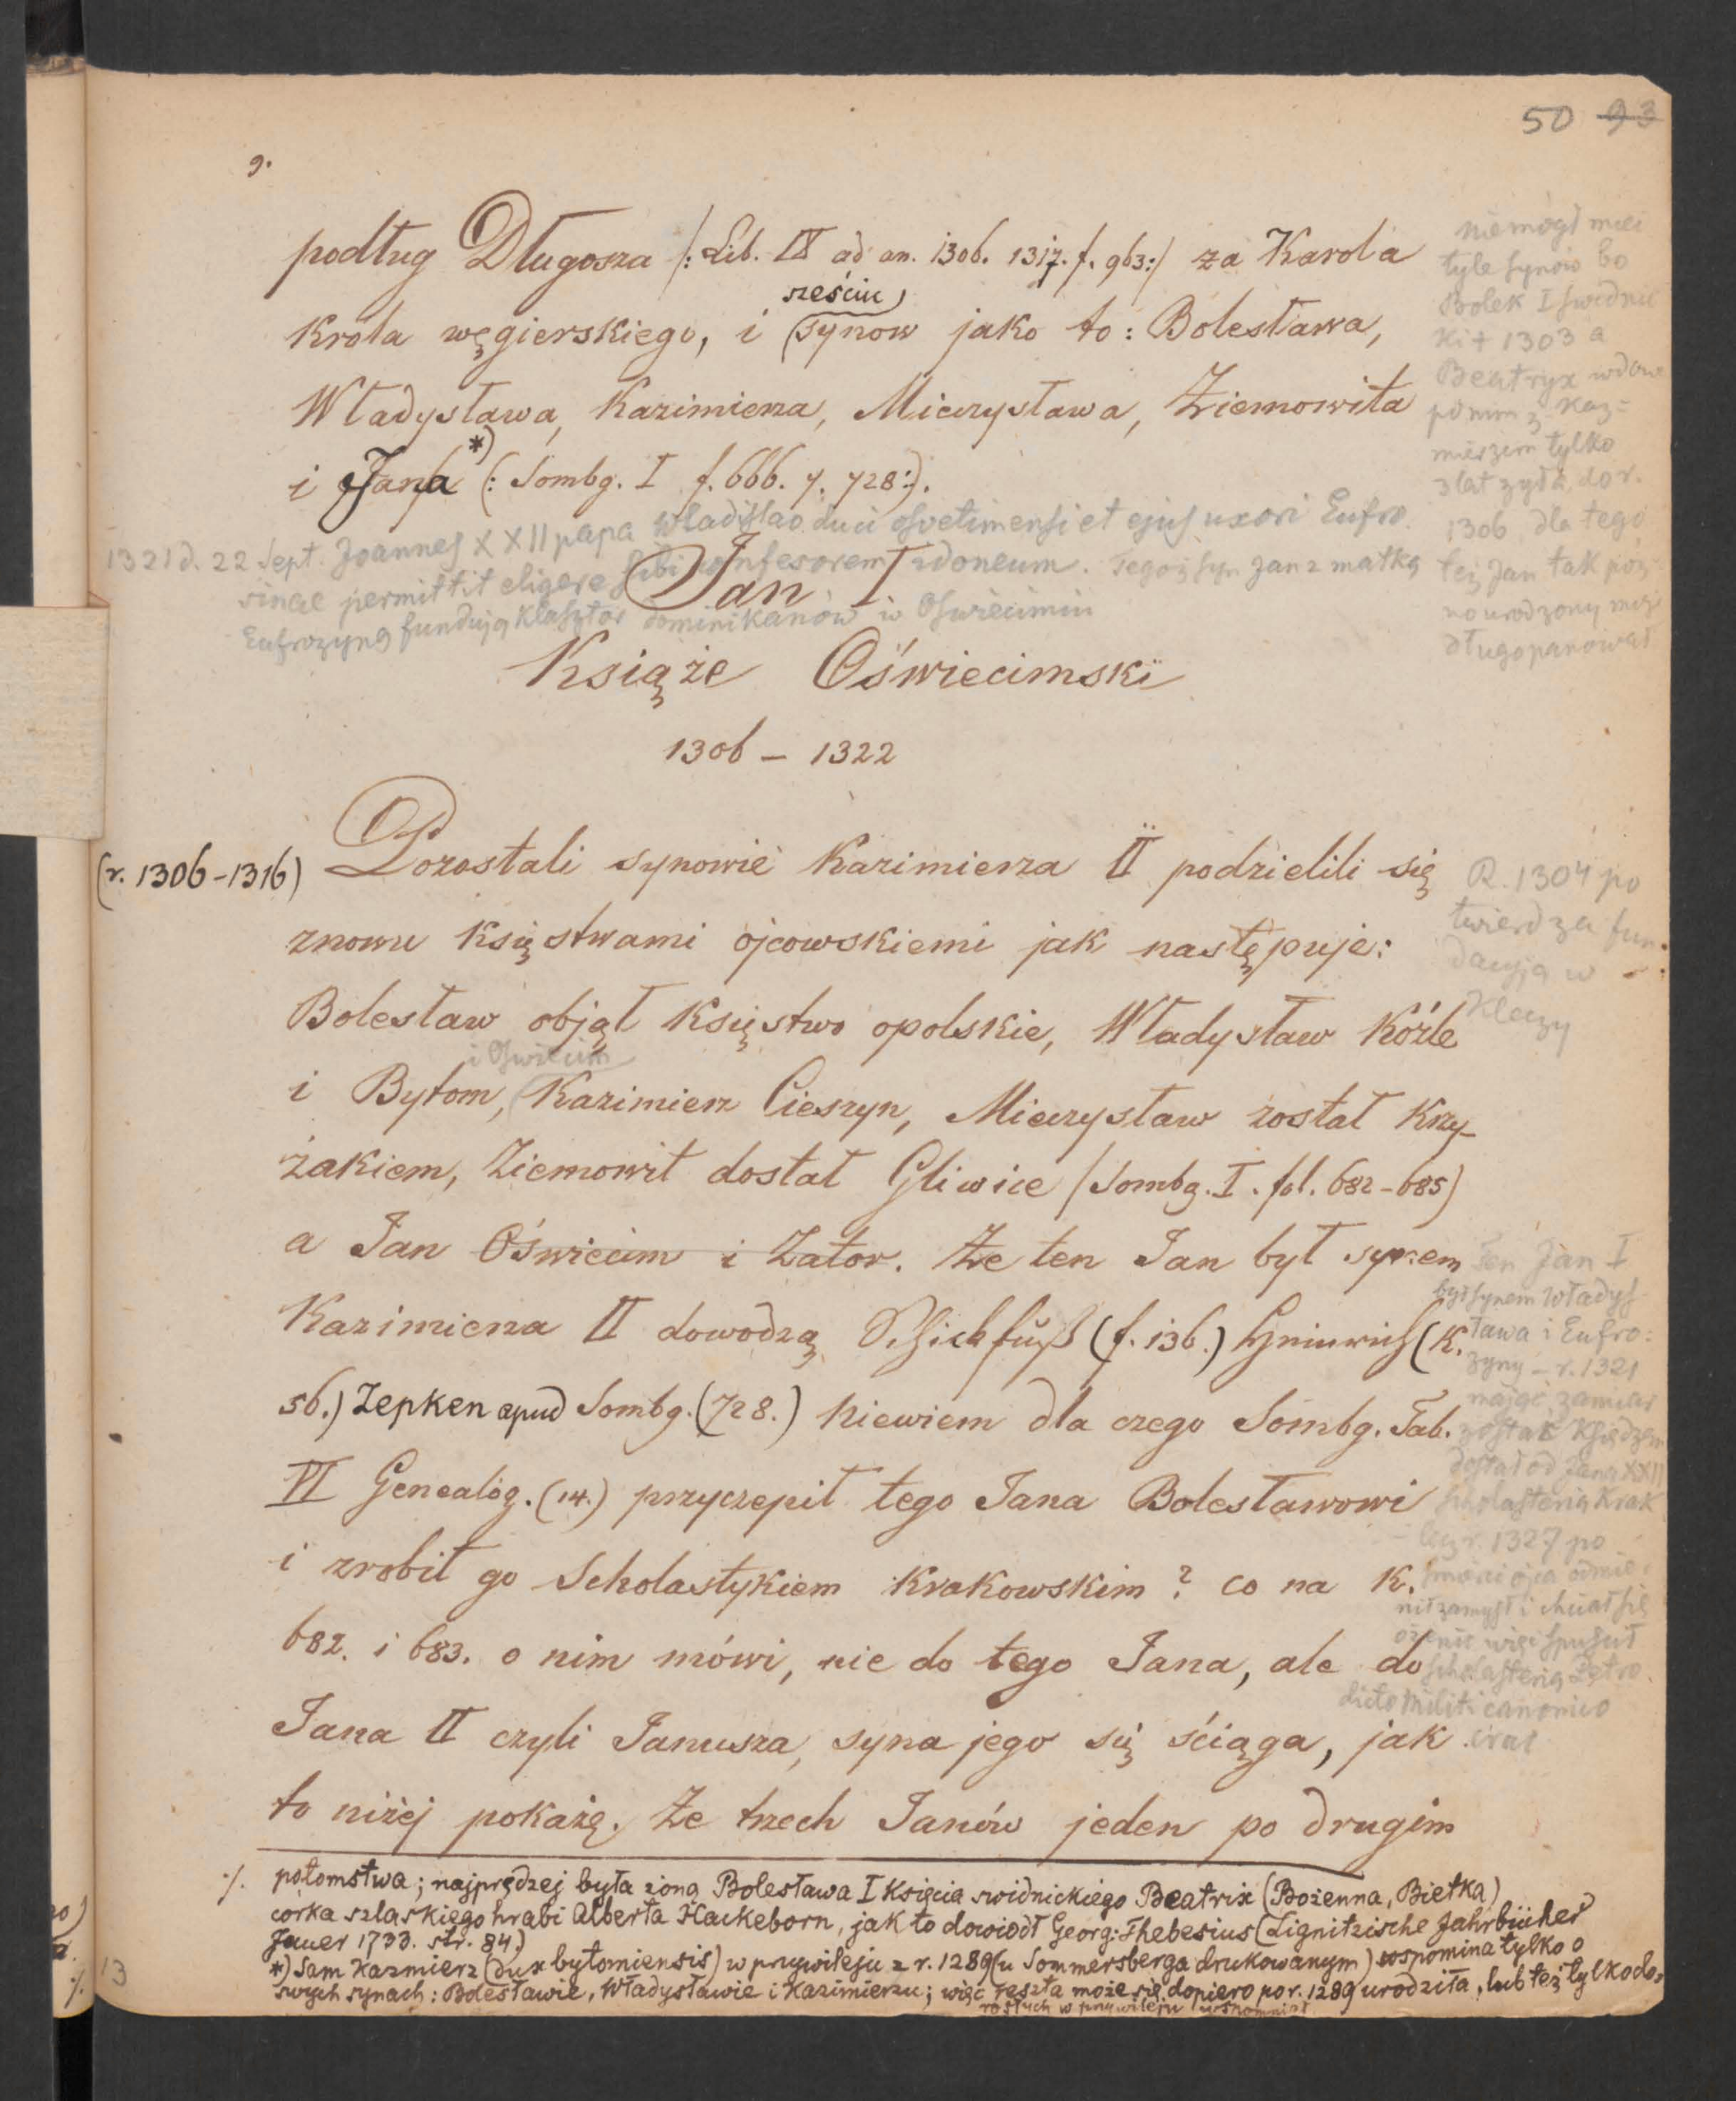 50 93
9.
podług Długosza /: Lib. IX ad an. 1306. 1317. f. 963:/ za Karola
sześciu
Króla węgierskiego, i synow jako to: Bolesława,
Władysława, Kazimierza, Mieczysława, Ziemowita
i Jana *) (: Sombg. I f. 666. 7. 728:).
niemógł mieć
tyle synów bo
Bolek I swidnic
ki + 1303 a
Beatryx wdowa
po nim z Kaz=
mierzem tylko
3 lat żyła, do r.
1306 dla tego
też Jan tak póź
no urodzony mógł
długo panował
1321 d. 22 Sept. Joannes XXII papa Wladislao duci osvetimensi et ejus uxori Eufro
sinae permittit eligere sibi confesorem idoneum. Tegoż syn Jan z matką
Eufrozyną fundują klasztor dominikanów w Oświecimiu
Jan I.
Książe Oświecimski
1306 – 1322
(r. 1306-1316)
Pozostali synowie Kazimierza II podzielili się
znowu księstwami ojcowskiemi jak następuje:
Bolesław objął Księstwo opolskie, Władysław Koźle
i Oswiecim
i Bytom, Kazimierz Cieszyn, Mieczysław został Krzy-
żakiem, Ziemowit dostał Gliwice /Sombg. I. fol. 682-685)
a Jan Oświecim i Zator. Że ten Jan był synem
Kazimierza II dowodzą Schickfuß (f. 136.) (K.
56.) Zepken apud Sombg. (728.) Niewiem dla czego Sombg. Tab.
VI Genealog. (14.) przyczepił tego Jana Bolesławowi
i zrobił go Scholastykiem Krakowskim? co na K.
682. i 683. o nim mówi, nie do tego Jana, ale do
Jana II czyli Janusza, syna jego się ściąga, jak
to niżej pokażę. Że trzech Janów jeden po drugim
R. 1304 po
twierdza fun
dacyją w
Kleczy
Ten Jan I
był synem Władys
ława i Eufro:
zyny – r. 1321
mając zamiar
zostać Księdzem
dostał od Jana XXII
scholasterią Krak
lecz r. 1327 po
śmierci ojca odmie
nił zamysł i chciał się
ożenić więc spuścił
scholasterią Petro
dicto Militi canonico
crac
·/. potomstwa; najprędzej była żoną Bolesława I Księcia swidnickiego Beatrix (Bożenna, Bietka)
córka szlaskiego hrabi Alberta Hackeborn, jak to dowiódł Georg: Thebesius (Lignitzische Jahrbücher
Jauer 1733. str. 84.)
*) Sam Kazmierz (dux bytomiensis) w przywileju z r. 1289 (u Sommersberga drukowanym) wspomina tylko o
swych synach: Bolesławie, Władysławie i Kazimierzu; więc reszta może się dopiero po r. 1289 urodziła, lub też tylko do-
rosłych w przywileju wspomniał
13